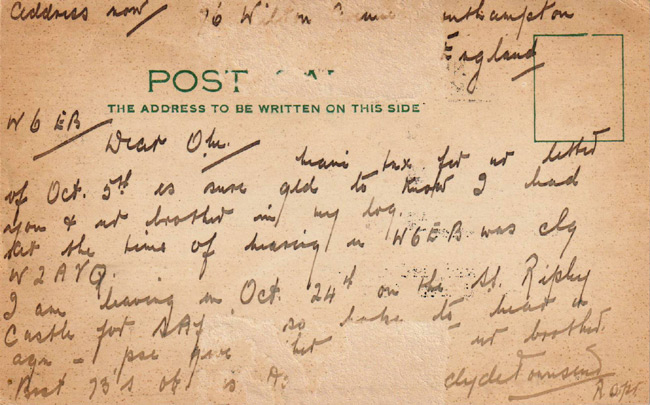 address now 76 Wilton Southampton
England
POST CA
THE ADDRESS TO BE WRITTEN ON THIS SIDE
W6EB Dear O.M. many tnx for ur letter
of Oct. 5th es sure gld to know I had
you & ur brother in my log.
At the time of hearing u W6EB was clg
W2AVQ.
I am leaving on Oct. 24th on the St. Ripley
Castle for SAf so hake to hear u
agn - pse give ur brother.
Best 73's ob es
clydeTownsend